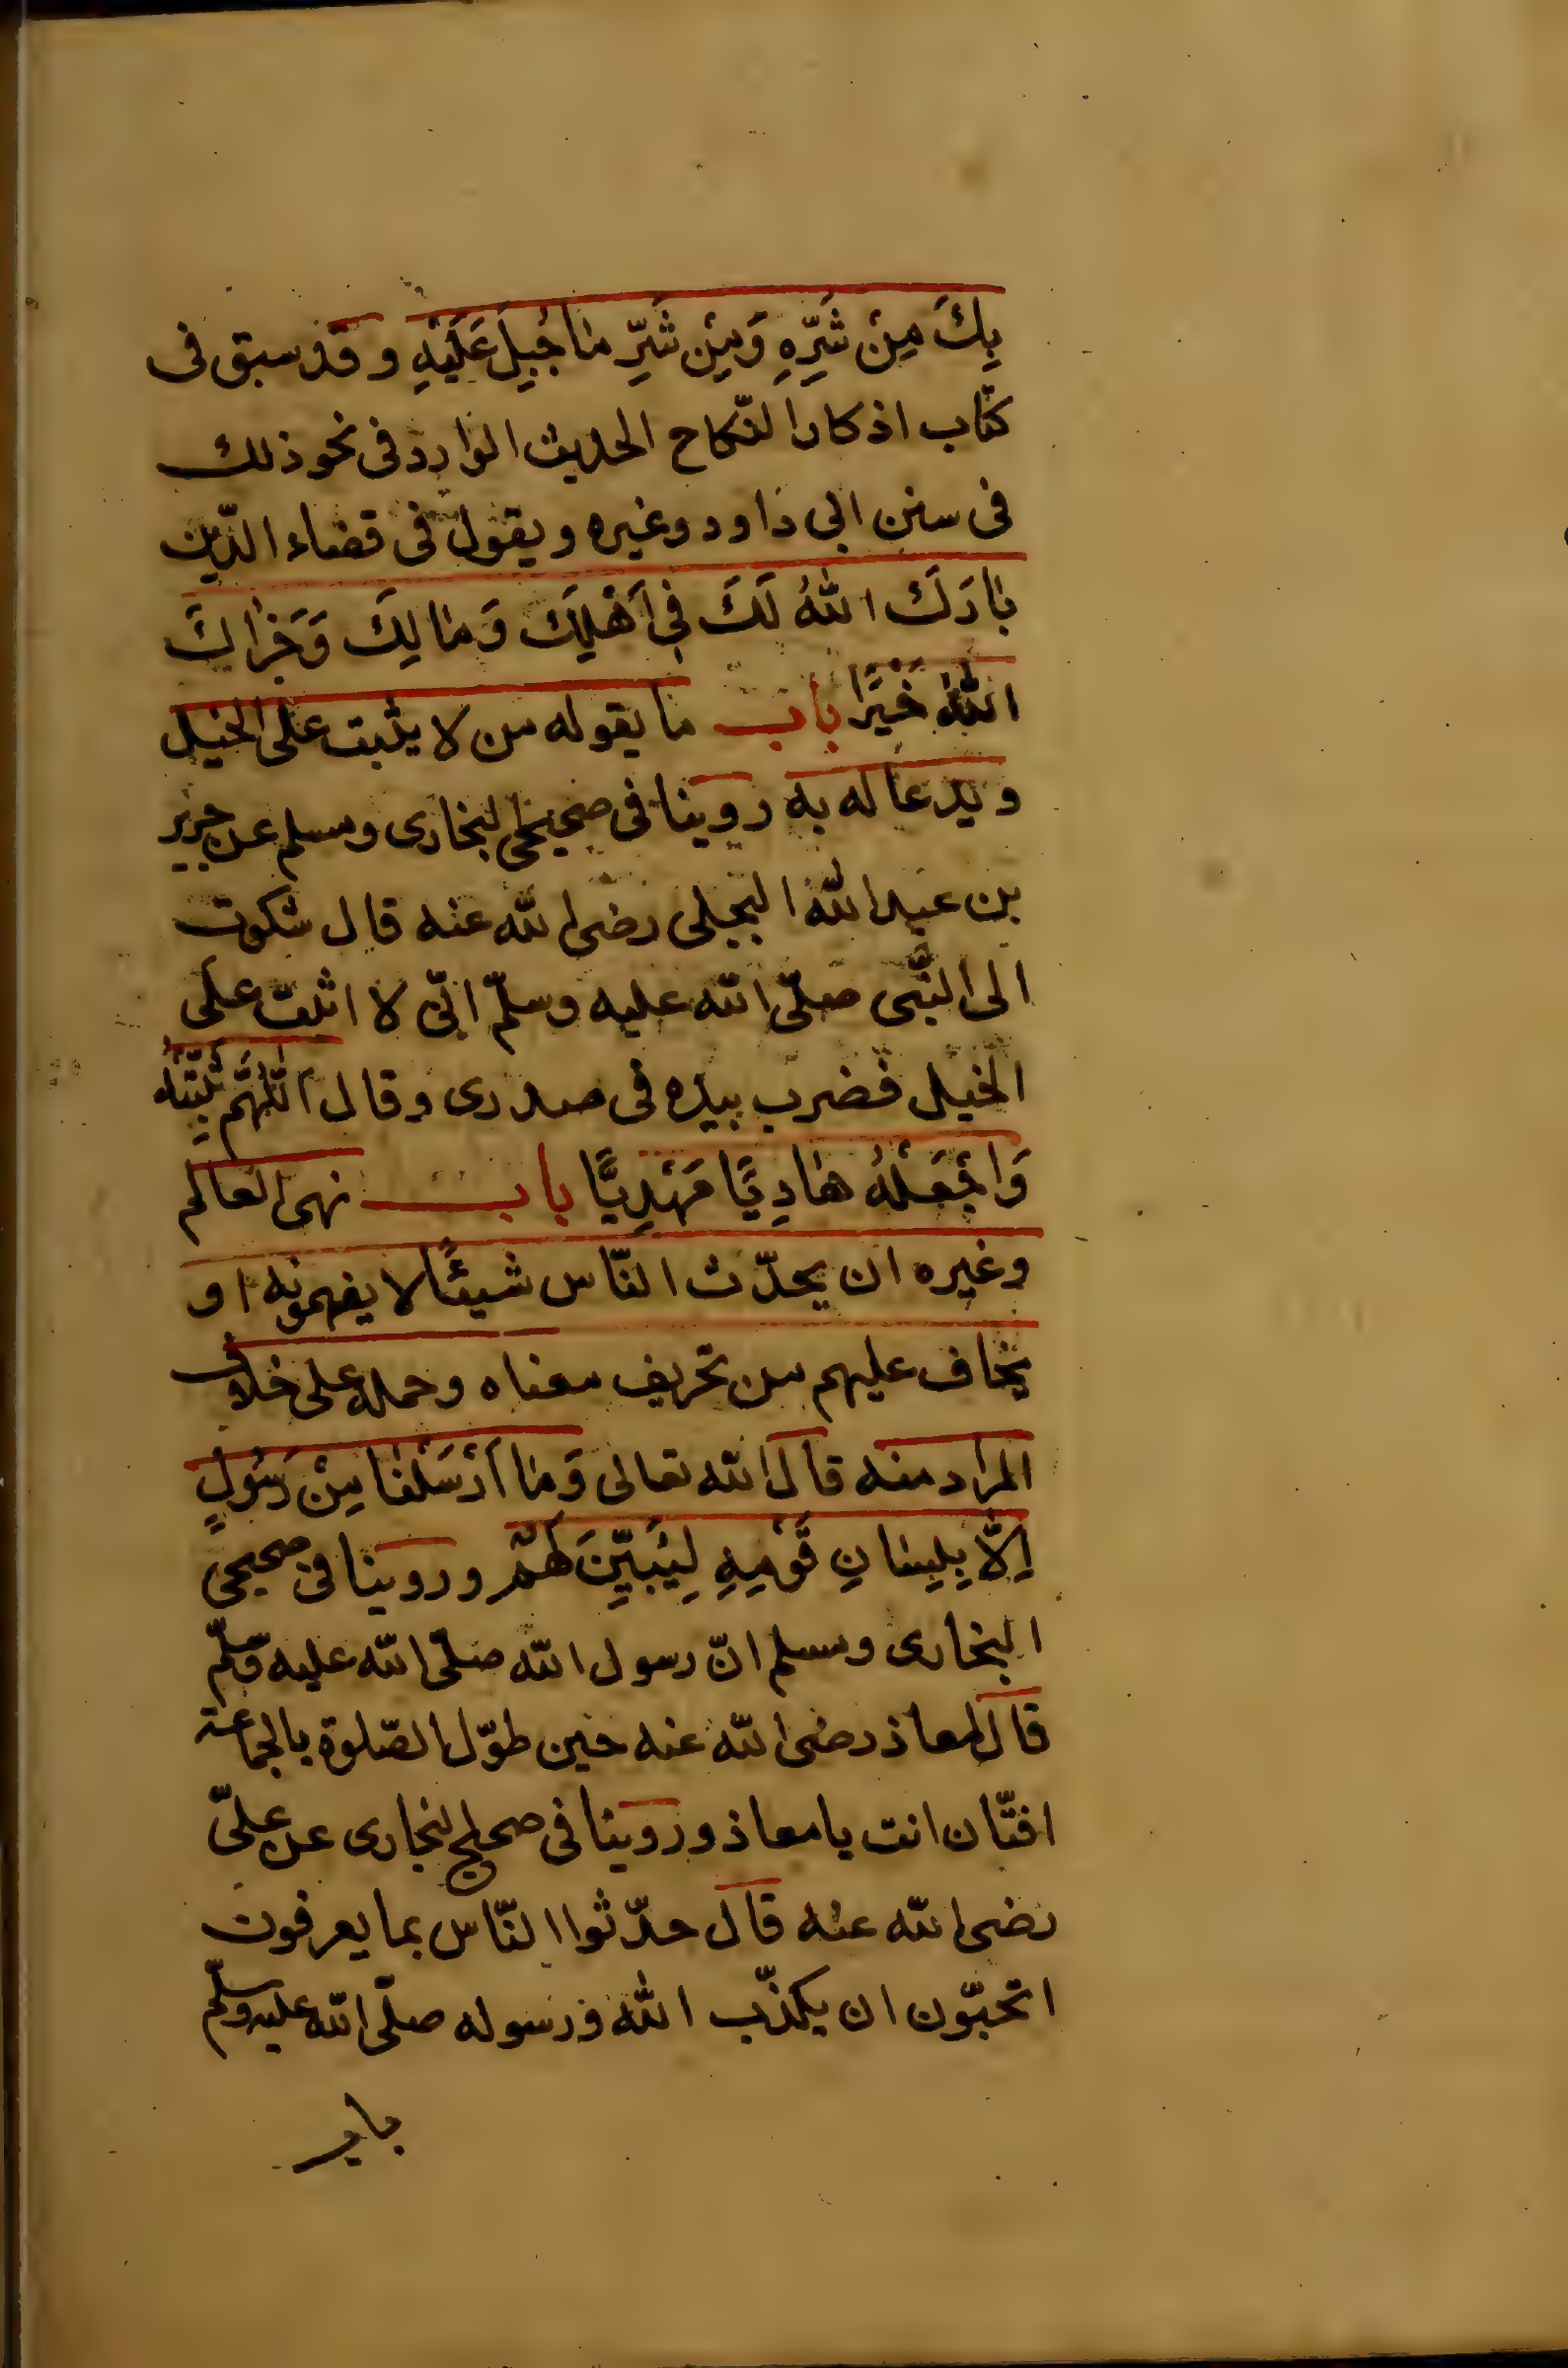 بِكَ مِنْ شَرِّهِ وَمِنْ شَرِّ مَا جُبِلَ عَلَيْهِ وقد سبق فى
كتاب اذكار النّكاح الحديث الوارد فى نحو ذلك
فى سنن ابى داود وغيره ويقول فى قضاء الدّين
بَارَكَ اللّٰهُ لَكَ فِى اَهْلِكَ وَمَالِكَ وَجَزَاكَ
اللّٰهُ خَيْرًا باب ما يقوله من لا يثبت على الخيل
ويدعا له به روينا فى صحيحى البخارى ومسلم عن جرير
بن عبد اللّٰه البجلى رضى اللّٰه عنه قال شكوت
الى النّبى صلّى اللّٰه عليه وسلّم انّى لا اثبت على
الخيل فضرب بيده فى صدرى وقال اَللّٰهُمَّ ثَبِّتْهُ
وَاجْعَلْهُ هَادِيًا مَهْدِيًّا باب نهى العالم
وغيره ان يحدّث النّاس شيئًا لا يفهمونه او
يخاف عليهم من تحريف معناه وحمله على خلاف
المراد منه قال اللّٰه تعالى وَمَا اَرْسَلْنَا مِنْ رَسُولٍ
اِلَّا بِلِسَانِ قَوْمِهِ لِيُبَيِّنَ لَهُمْ وروينا فى صحيحى
البخارى ومسلم انّ رسول اللّٰه صلّى اللّٰه عليه وسلّم
قال لمعاذ رضى اللّٰه عنه حين طوّل الصّلوة بالجماعة
افتّان انت يا معاذ وروينا فى صحيح البخارى عن علىّ
رضى اللّٰه عنه قال حدّثوا النّاس بما يعرفون
اتحبّون ان يكذّب اللّٰه ورسوله صلّى اللّٰه عليه وسلّم
باب